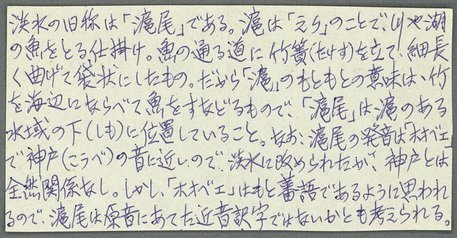 淡水の旧称は「滬尾」である。滬は「えり」のことで、川や湖
の魚をとる仕掛け。魚の通る道に竹簀(たけす)を立て、細長
く曲げて袋状にしたもの。だから「滬」のもともとの意味は、竹
を海辺にならべて魚をすなどるもので、「滬尾」は、滬のある
水域の下(しも)に位置していること。なお、滬尾の発音は「ホオベエ」
で神戸(こうべ)の音に近いので、淡水に改められたが、神戸とは
全然関係なし。しかし、「ホオベエ」はもと蕃語であるように思われ
るので、滬尾は原音にあてた近音訳字ではないかとも考えられる。